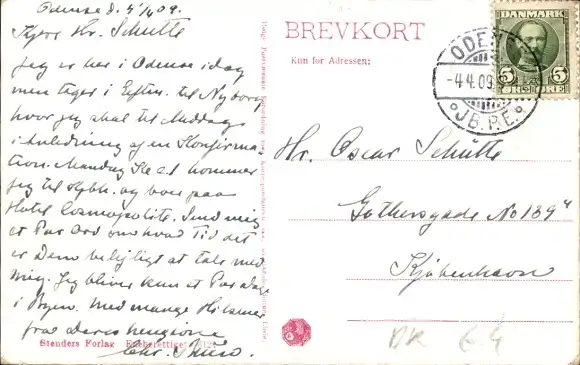 Odense d. 4/4 09.
Kjære Hr. Schütte
Jeg er her i Odense idag
men tager i Efterm. til Nyborg
hvor jeg skal til Middag
i Anledning af en Konfirma-
tion. Mandag Kl. kommer
jeg til Kjbh. og boer paa
Hotel Cosmopolite. Send mig
et Par Ord om hvad Tid det
er Dem belejligt at tale med
mig. Jeg bliver kun et Par dage
i Byen. Med mange Hilsener
fra Deres hengivne
Chr.
Stenders Forlag Eneberettiget
BREVKORT
Kun for Adressen:
DANMARK
5 5
ØRE
ODENSE
-4.4.09.
JB.P.E.
Hr. Oscar Schütte
Gothersgade No 139
Kjøbenhavn
DK